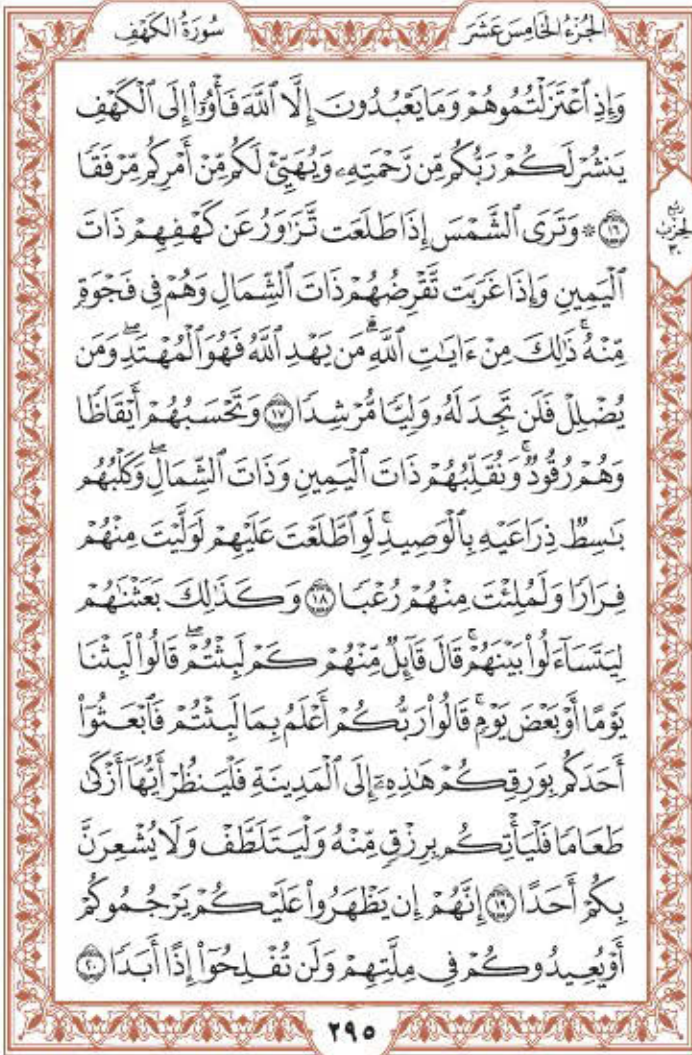 الجُزْءُ الخَامِسَ عَشَرَ
سُورَةُ الكَهْفِ
وَإِذِ ٱعْتَزَلْتُمُوهُمْ وَمَا يَعْبُدُونَ إِلَّا ٱللَّهَ فَأْوُۥٓا۟ إِلَى ٱلْكَهْفِ
يَنشُرْ لَكُمْ رَبُّكُم مِّن رَّحْمَتِهِۦ وَيُهَيِّئْ لَكُم مِّنْ أَمْرِكُم مِّرْفَقًا
رُبْعُ
الحِزْبِ
٣٠
﴿١٦﴾ ۞ وَتَرَى ٱلشَّمْسَ إِذَا طَلَعَت تَّزَٰوَرُ عَن كَهْفِهِمْ ذَاتَ
ٱلْيَمِينِ وَإِذَا غَرَبَت تَّقْرِضُهُمْ ذَاتَ ٱلشِّمَالِ وَهُمْ فِى فَجْوَةٍ
مِّنْهُ ۚ ذَٰلِكَ مِنْ ءَايَٰتِ ٱللَّهِ ۗ مَن يَهْدِ ٱللَّهُ فَهُوَ ٱلْمُهْتَدِ ۖ وَمَن
يُضْلِلْ فَلَن تَجِدَ لَهُۥ وَلِيًّا مُّرْشِدًا ﴿١٧﴾ وَتَحْسَبُهُمْ أَيْقَاظًا
وَهُمْ رُقُودٌ ۚ وَنُقَلِّبُهُمْ ذَاتَ ٱلْيَمِينِ وَذَاتَ ٱلشِّمَالِ ۖ وَكَلْبُهُم
بَٰسِطٌ ذِرَاعَيْهِ بِٱلْوَصِيدِ ۚ لَوِ ٱطَّلَعْتَ عَلَيْهِمْ لَوَلَّيْتَ مِنْهُمْ
فِرَارًا وَلَمُلِئْتَ مِنْهُمْ رُعْبًا ﴿١٨﴾ وَكَذَٰلِكَ بَعَثْنَٰهُمْ
لِيَتَسَآءَلُوا۟ بَيْنَهُمْ ۚ قَالَ قَآئِلٌ مِّنْهُمْ كَمْ لَبِثْتُمْ ۖ قَالُوا۟ لَبِثْنَا
يَوْمًا أَوْ بَعْضَ يَوْمٍ ۚ قَالُوا۟ رَبُّكُمْ أَعْلَمُ بِمَا لَبِثْتُمْ فَٱبْعَثُوٓا۟
أَحَدَكُم بِوَرِقِكُمْ هَٰذِهِۦٓ إِلَى ٱلْمَدِينَةِ فَلْيَنظُرْ أَيُّهَآ أَزْكَىٰ
طَعَامًا فَلْيَأْتِكُم بِرِزْقٍ مِّنْهُ وَلْيَتَلَطَّفْ وَلَا يُشْعِرَنَّ
بِكُمْ أَحَدًا ﴿١٩﴾ إِنَّهُمْ إِن يَظْهَرُوا۟ عَلَيْكُمْ يَرْجُمُوكُمْ
أَوْ يُعِيدُوكُمْ فِى مِلَّتِهِمْ وَلَن تُفْلِحُوٓا۟ إِذًا أَبَدًا ﴿٢٠﴾
٢٩٥